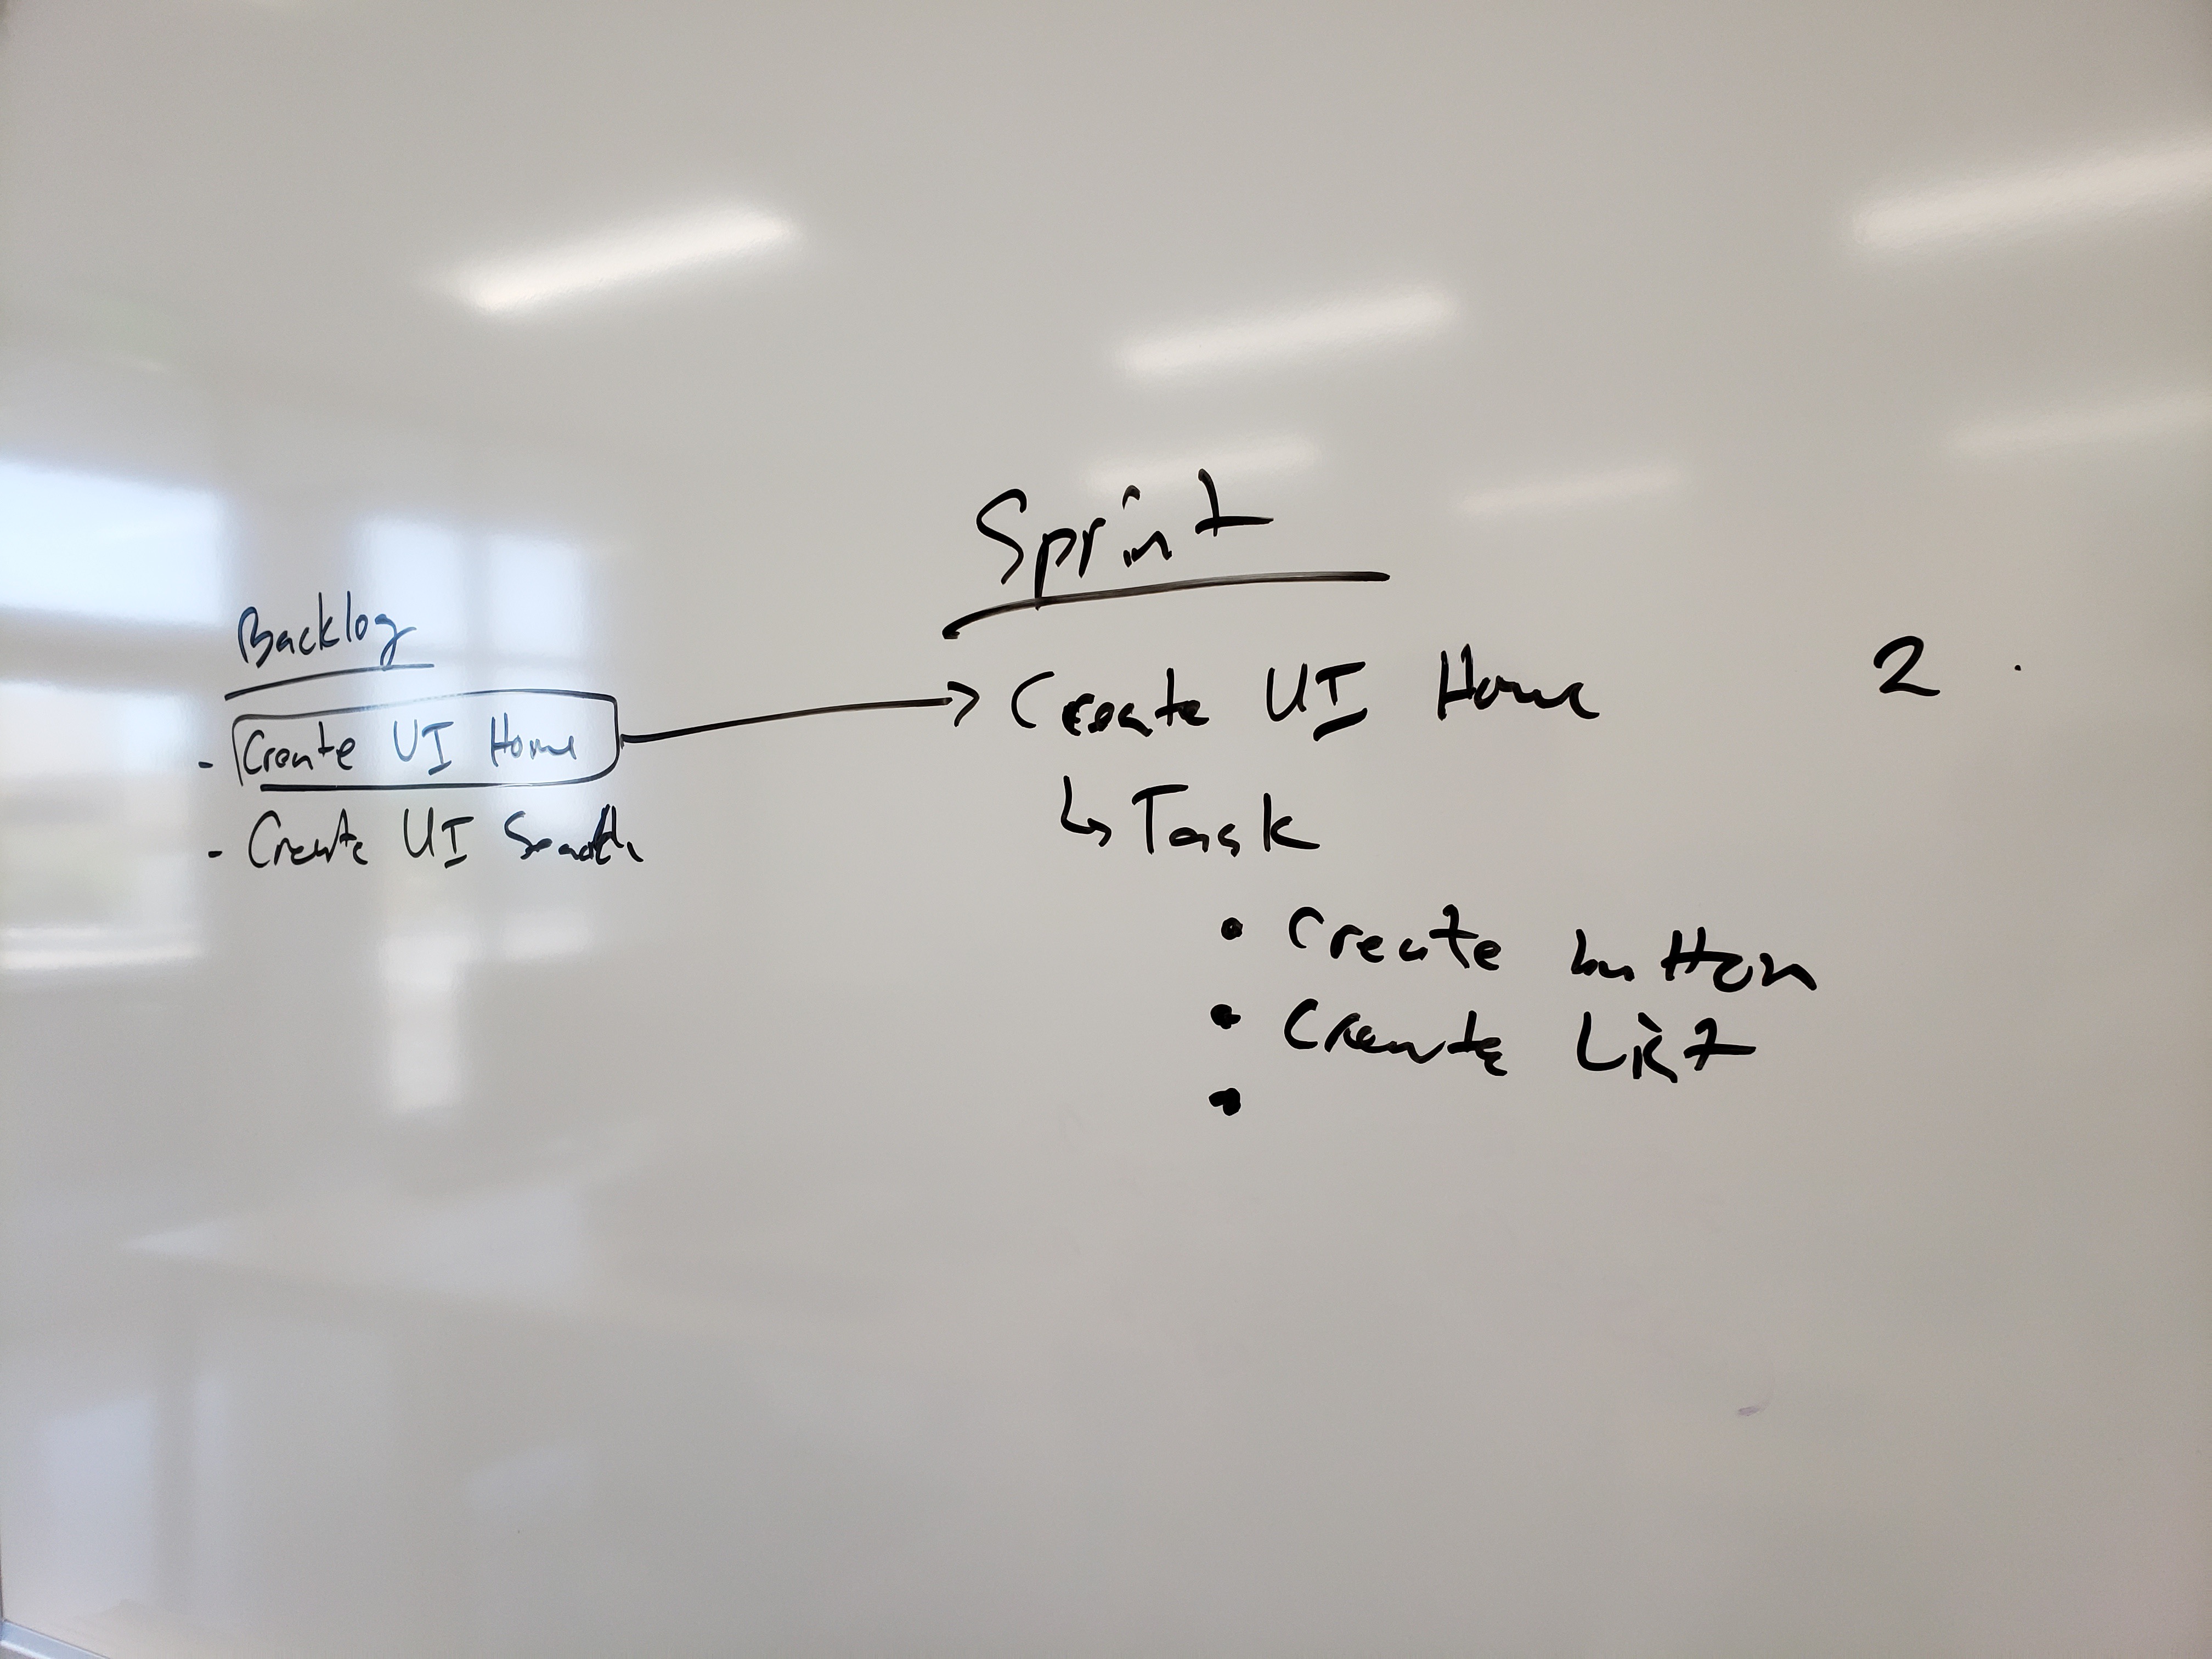 Backlog
- Create UI Home
- Create UI Search
Sprint
Create UI Home 2
↳ Task
• Create button
• Create List
•